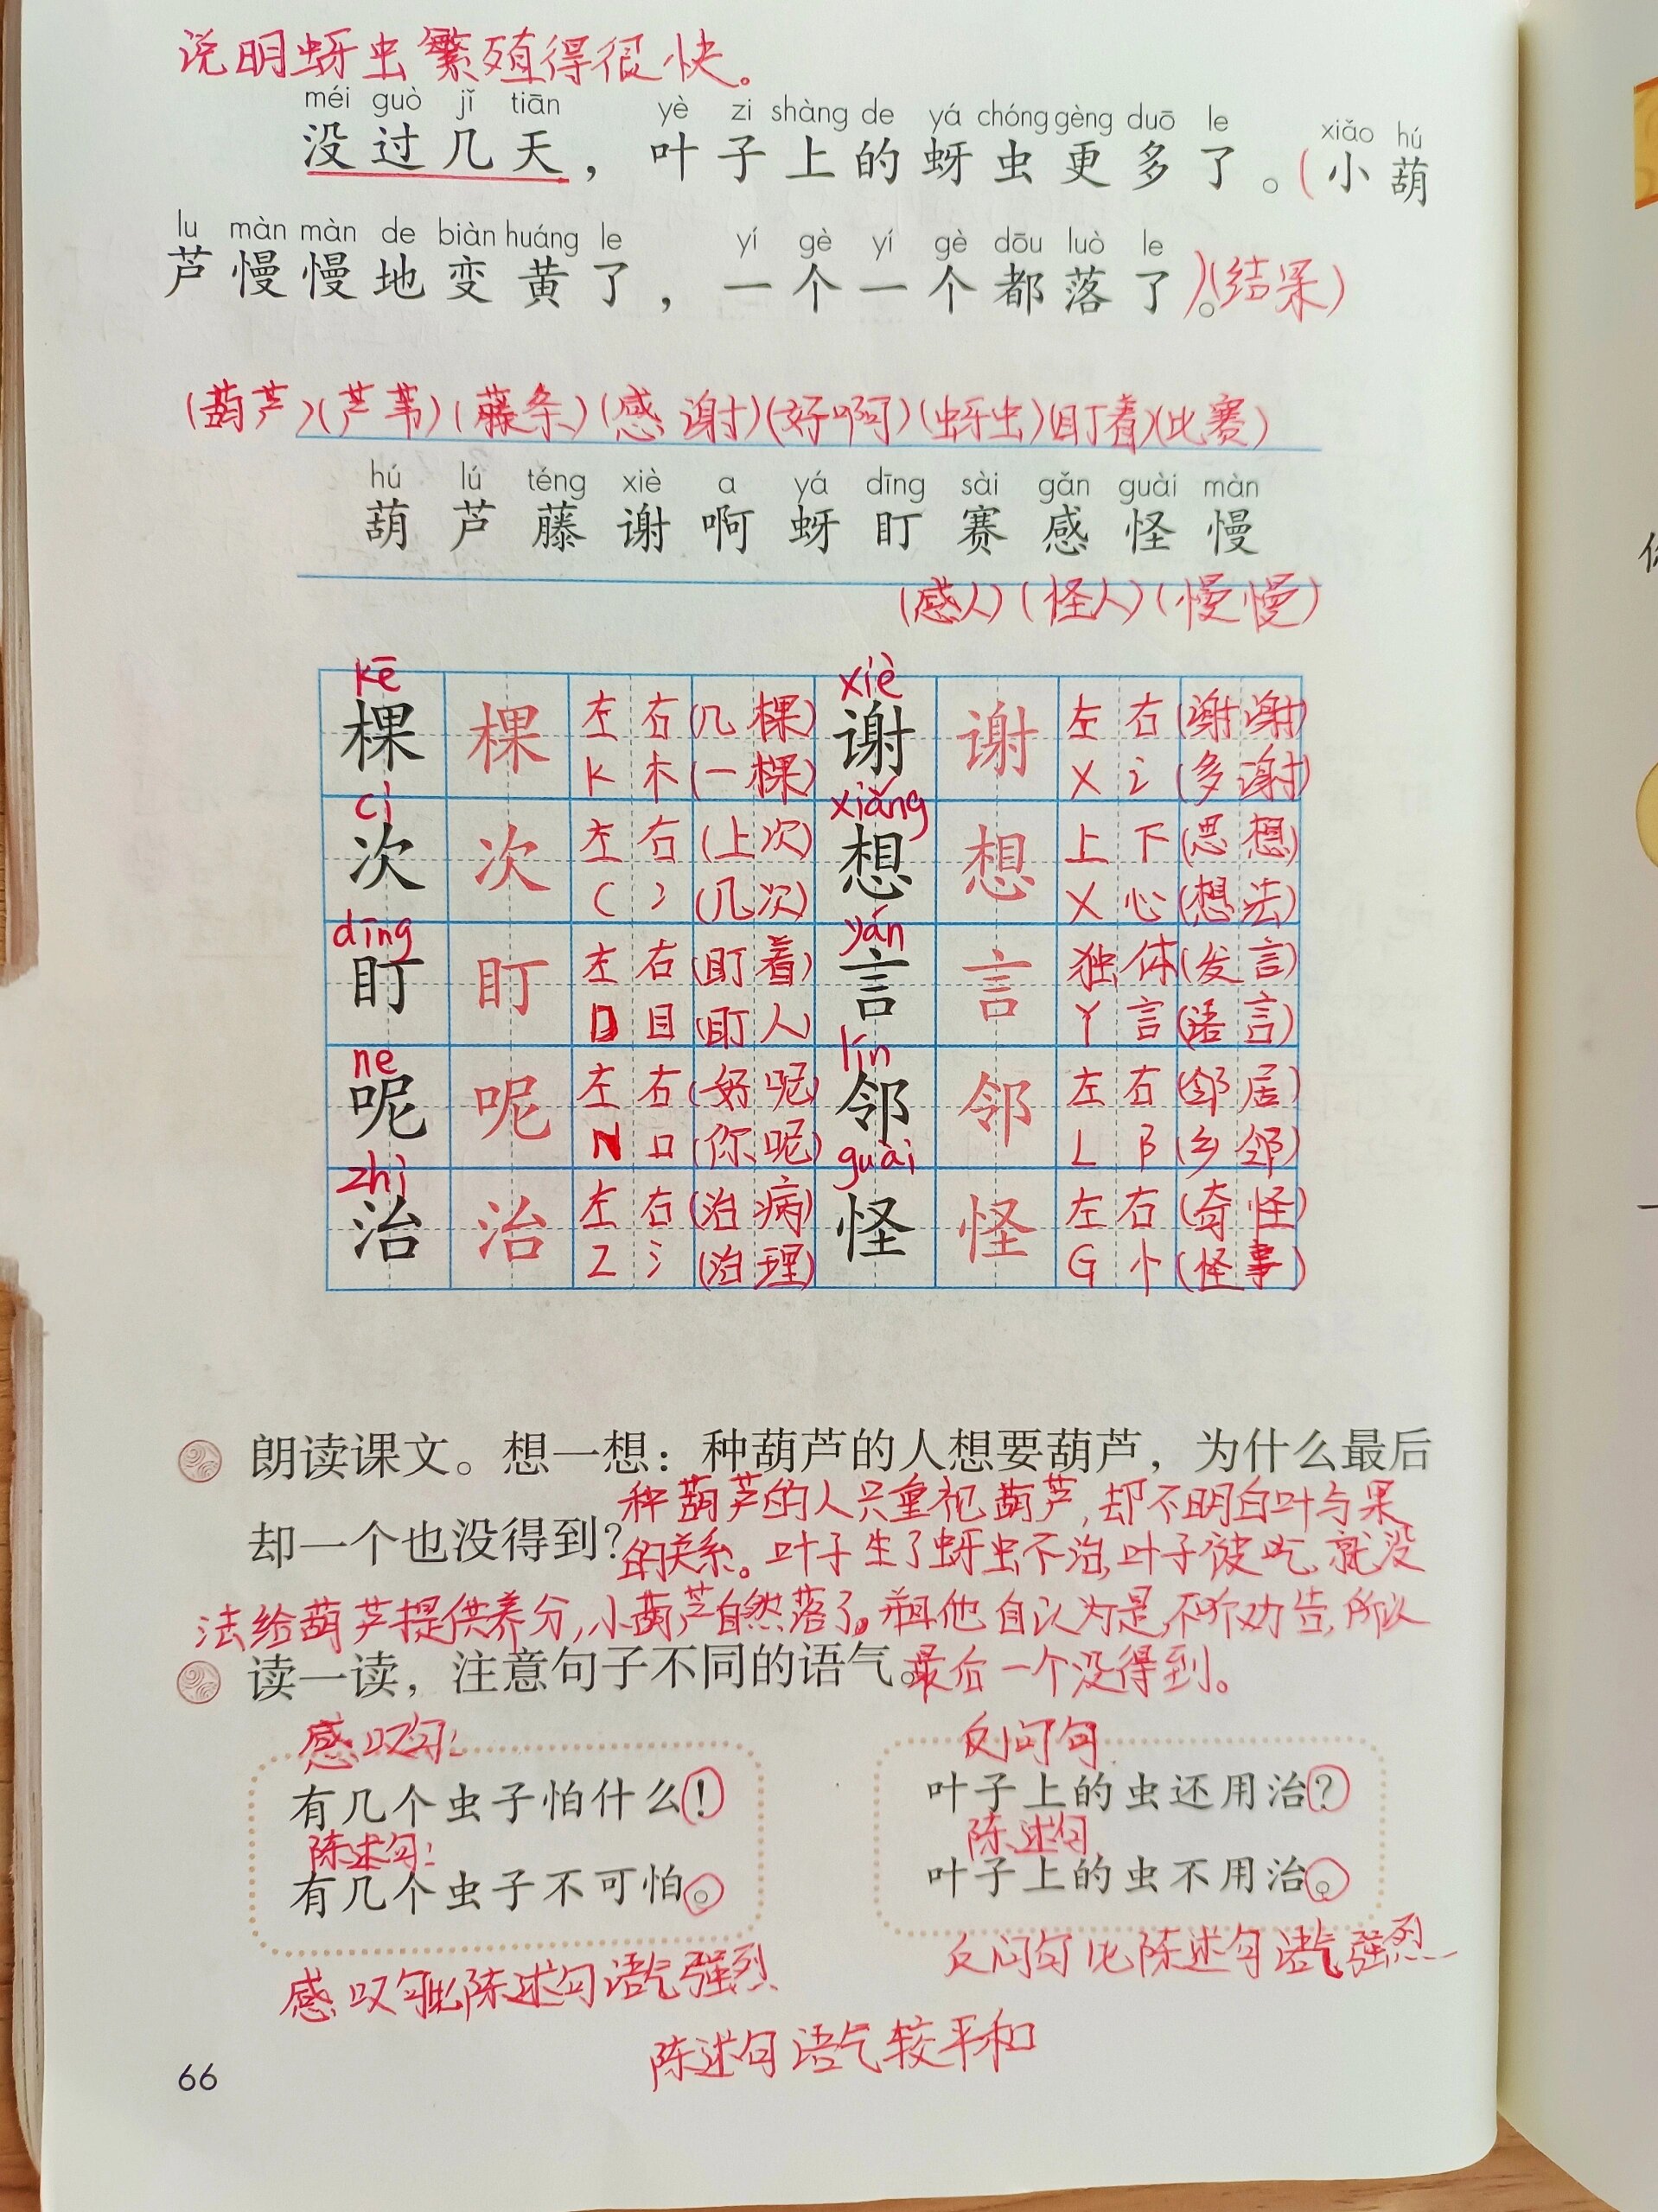 说明蚜虫繁殖得很快。
méi guò jǐ tiān yè zi shàng de yá chóng gèng duō le xiǎo hú
没过几天，叶子上的蚜虫更多了。(小葫
lu màn màn de biàn huáng le yí gè yí gè dōu luò le
芦慢慢地变黄了，一个一个都落了。)(结果)
(葫芦)(芦苇)(藤条)(感谢)(好啊)(蚜虫)(盯着)(比赛)
hú lú téng xiè a yá dīng sài gǎn guài màn
葫 芦 藤 谢 啊 蚜 盯 赛 感 怪 慢
(感人)(怪人)(慢慢)
kē xiè
棵 棵 左右 (几棵) 谢 谢 左右 (谢谢)
K 木 (一棵) X 讠 (多谢)
cì xiǎng
次 次 左右 (上次) 想 想 上下 (思想)
C 冫 (几次) X 心 (想法)
dīng yán
盯 盯 左右 (盯着) 言 言 独体 (发言)
D 目 (盯人) Y 言 (语言)
ne lín
呢 呢 左右 (好呢) 邻 邻 左右 (邻居)
N 口 (你呢) L 阝 (乡邻)
zhì guài
治 治 左右 (治病) 怪 怪 左右 (奇怪)
Z 氵 (治理) G 忄 (怪事)
朗读课文。想一想：种葫芦的人想要葫芦，为什么最后
种葫芦的人只重视葫芦,却不明白叶与果
却一个也没得到？
的关系。叶子生了蚜虫不治,叶子被吃,就没
法给葫芦提供养分,小葫芦自然落了。并且他自认为是,不听劝告,所以
读一读，注意句子不同的语气。
最后一个没得到。
感叹句:
有几个虫子怕什么！
陈述句:
有几个虫子不可怕。
感叹句比陈述句语气强烈
反问句
叶子上的虫还用治？
陈述句
叶子上的虫不用治。
反问句比陈述句语气强烈
陈述句语气较平和
66